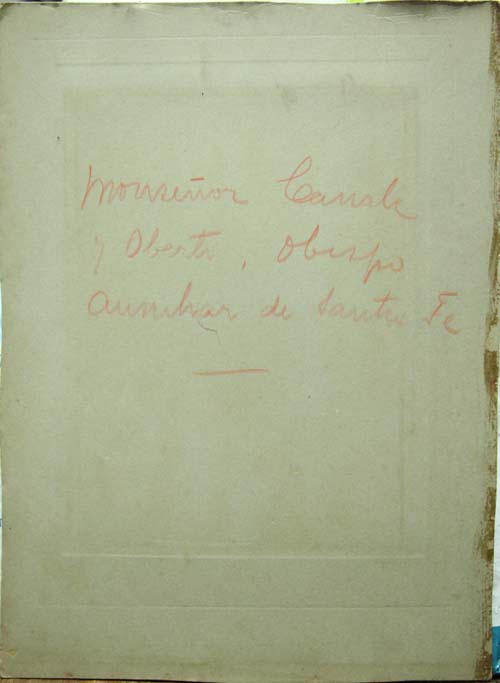 Monseñor Canale
y Oberti, Obispo
Auxiliar de Santa Fe